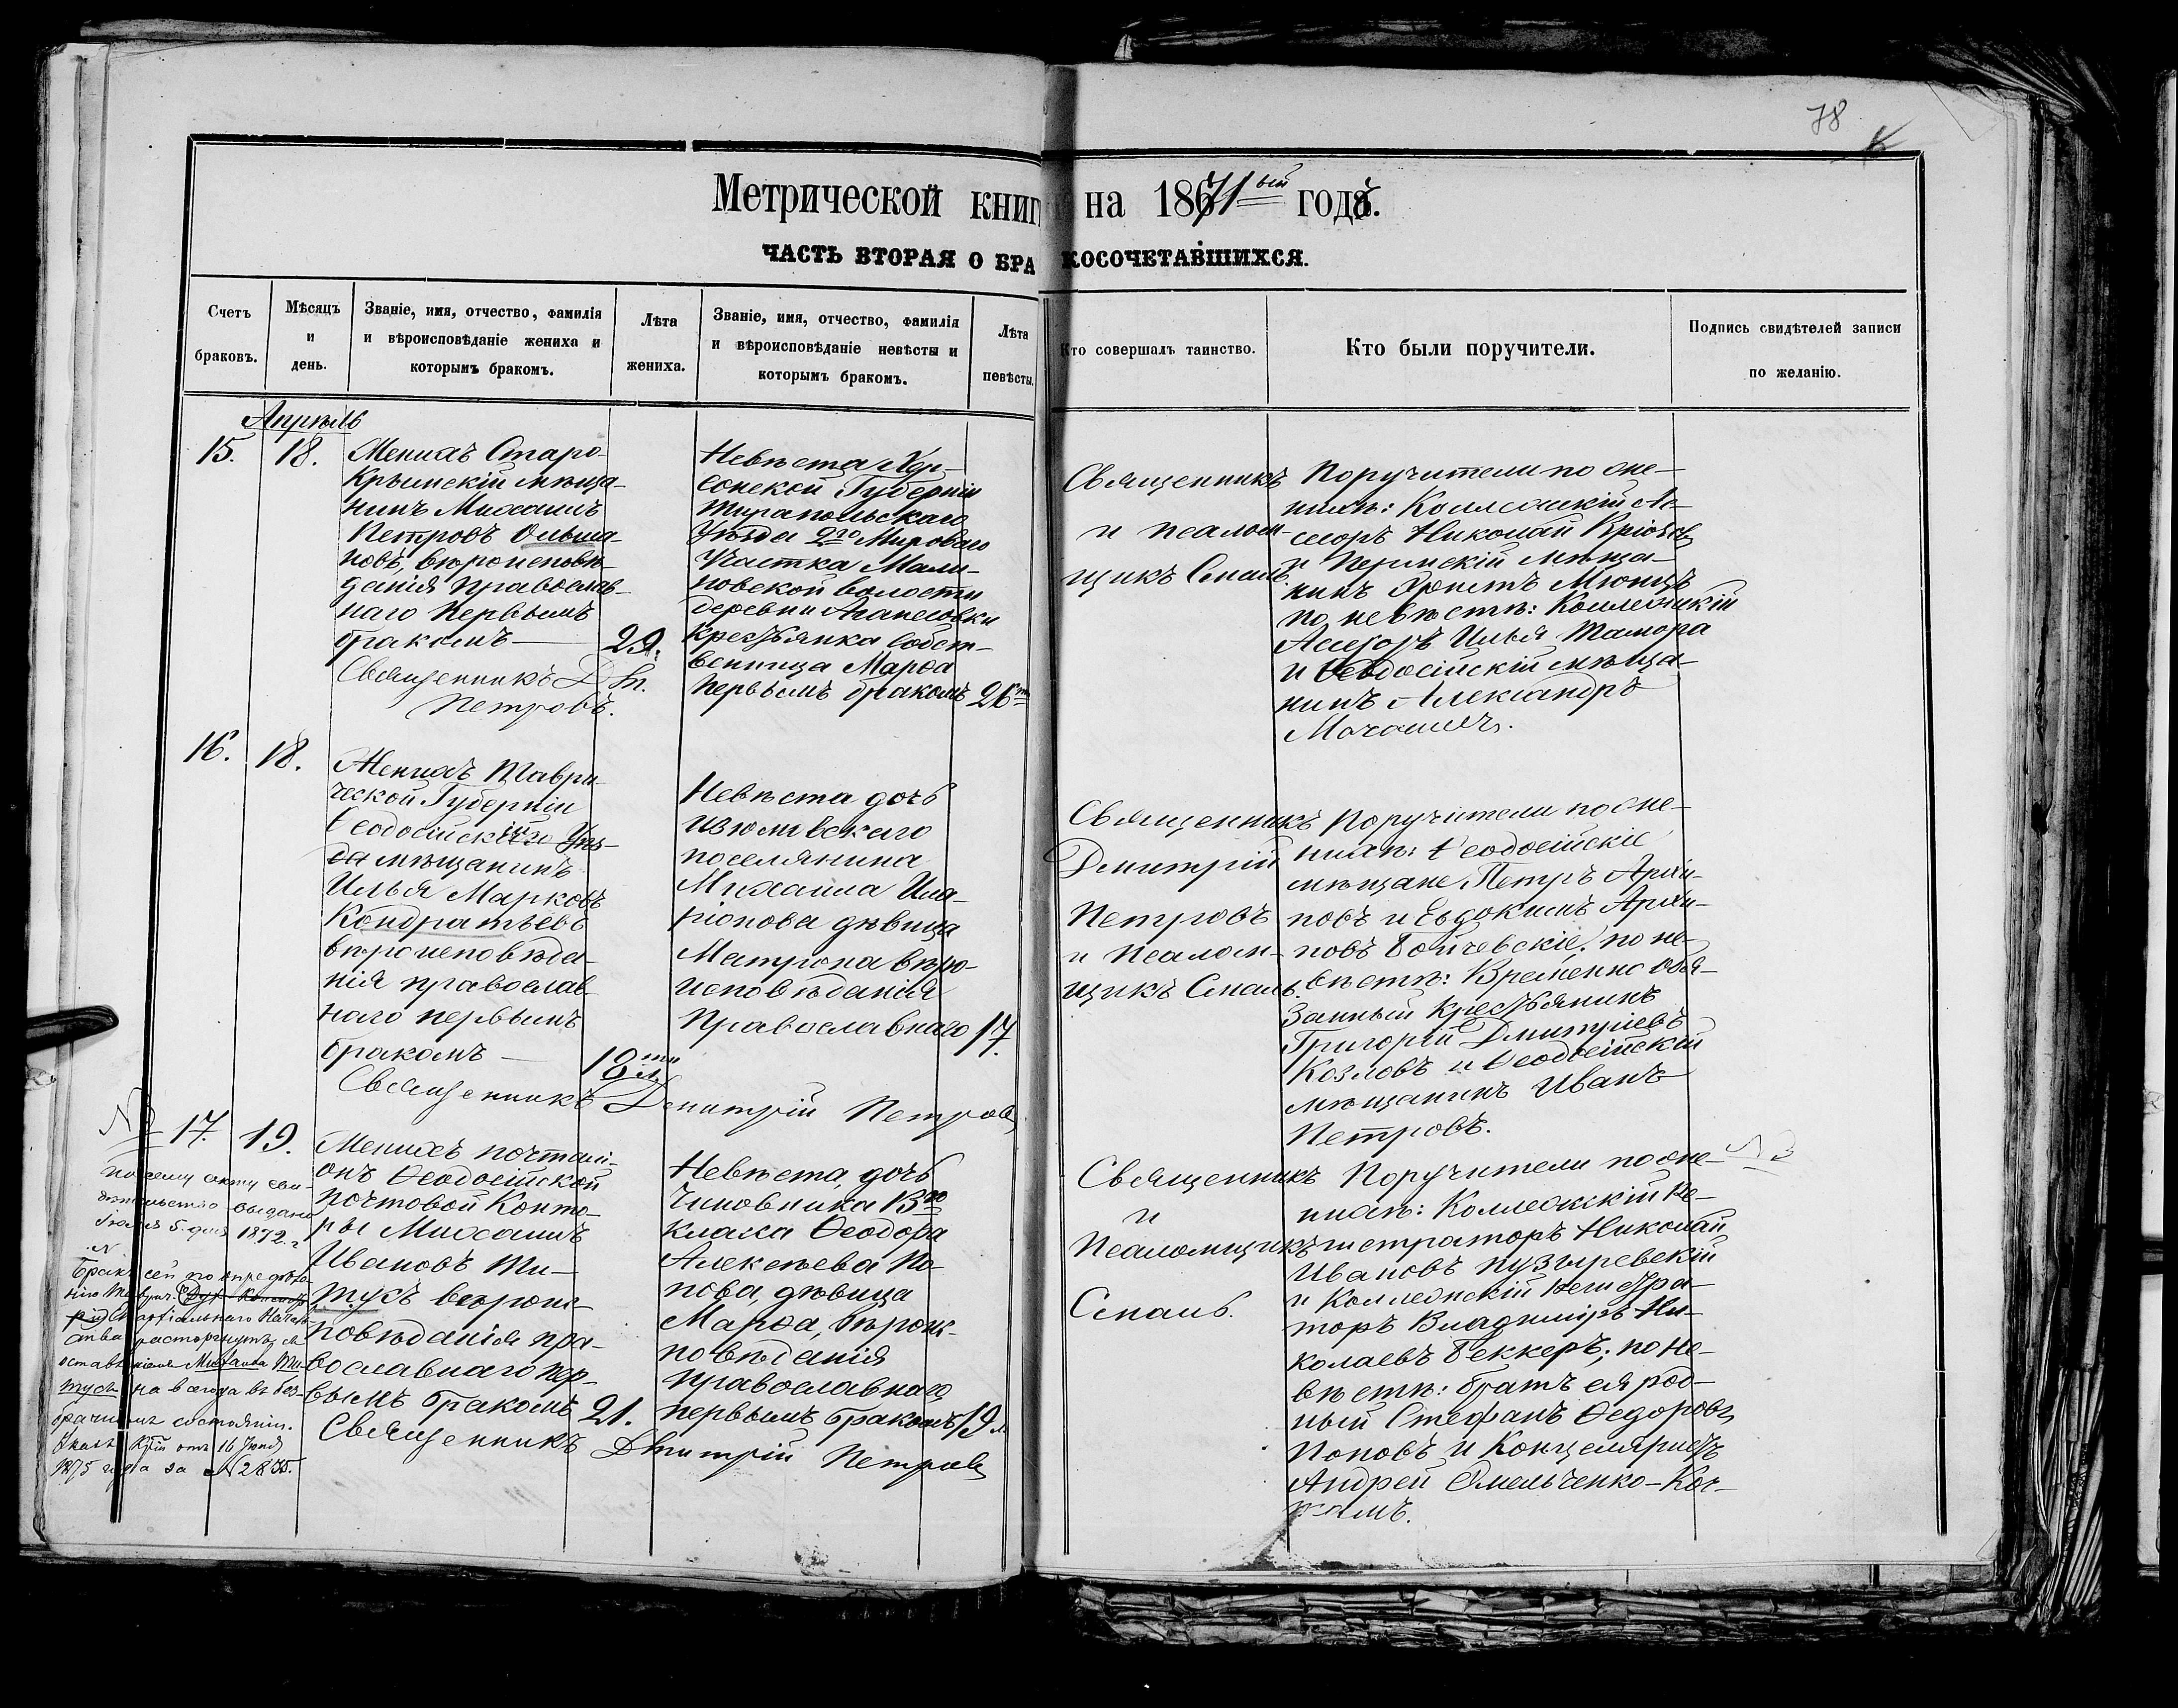 78
Метрической книги на 1871ый годъ.
ЧАСТЬ ВТОРАЯ О БРАКОСОЧЕТАВШИХСЯ.
Счетъ браковъ.
Мѣсяцъ и день.
Званіе, имя, отчество, фамилія
и вѣроисповѣданіе жениха и
которымъ бракомъ.
Лѣта жениха.
Званіе, имя, отчество, фамилія
и вѣроисповѣданіе невѣсты и
которымъ бракомъ.
Лѣта невѣсты.
Кто совершалъ таинство.
Кто были поручители.
Подпись свидѣтелей записи
по желанію.
Апрѣль
15. 18.
Женихъ Старо-
Крымскій мѣща-
нинъ Михаилъ
Петровъ Ольша-
новъ, вѣроисповѣ-
данія православ-
наго первымъ
бракомъ
29.
Священникъ Дм.
Петровъ.
Невѣста Хер-
сонской Губерніи
Тирапольскаго
Уѣзда 2го Мироваго
Участка Мали-
новской волости
деревни Агапесовки
крестьянка собст-
венница Марѳа
первымъ бракомъ
26
Священникъ
и псалом-
щикъ Спаль.
Поручители по же-
нихѣ: Коллежскій Ас-
сесоръ Николай
и Керчскій мѣща-
нинъ
по невѣстѣ: Коллежскій
Асесоръ Илья Тамора
и Ѳеодосійскій мѣща-
нинъ Александръ
16. 18.
Женихъ Таври-
ческой Губерніи
Ѳеодосійскаго Уѣз-
да мѣщанинъ
Илья Марковъ
Кондратьевъ
вѣроисповѣда-
нія православ-
наго первымъ
бракомъ
18
Священникъ Дмитрій Петровъ
Невѣста дочь
Изюмовскаго
поселянина
Михаила Ила-
ріонова дѣвица
Матрона вѣро-
исповѣданія
Православнаго
17.
Священникъ
Дмитрій
Петровъ
и Псалом-
щикъ Спаль.
Поручители по же-
нихѣ: Ѳеодосійскіе
мѣщане Петръ Архи-
повъ и Евдокимъ Архи-
повъ Бойчевскіе, по не-
вѣстѣ: Временно обя-
занный крестьянинъ
Григорій Дмитріевъ
Козловъ и Ѳеодосійскій
мѣщанинъ Иванъ
Петровъ.
17. 19.
Женихъ почталі-
онъ Ѳеодосійской
почтовой Конто-
ры Михаилъ
Ивановъ Ти-
тусъ вѣроис-
повѣданія пра-
вославнаго пер-
вымъ бракомъ
21.
Священникъ Дмитрій Петровъ
Невѣста, дочь
Чиновника
класса Ѳеодора
Алексѣева По-
пова, дѣвица
Марѳа, вѣроис-
повѣданія
православнаго
первымъ бракомъ
19
Священникъ
и
Псаломщикъ
Спаль.
Поручители по же-
нихѣ: Коллежскій Ре-
гистраторъ Николай
Ивановъ Пузыревскій
и Коллежскій Регистра-
торъ Владиміръ Ни-
колаевъ Беккеръ; по не-
вѣстѣ: братъ ея род-
ный Стефанъ Ѳедоровъ
Поповъ и Канцеляристъ
Андрей Омельченко-
По сему акту сви-
дѣтельство выдано
5. дня 1872. г.
Бракъ сей по опредѣле-
нію Таврич.
Епархіальнаго Началь-
ства расторгнутъ, съ
оставленіемъ Михаила Ти-
туса на всегда въ без-
брачномъ состояніи.
Указъ отъ 16 Іюня
1875 года за № 2835.